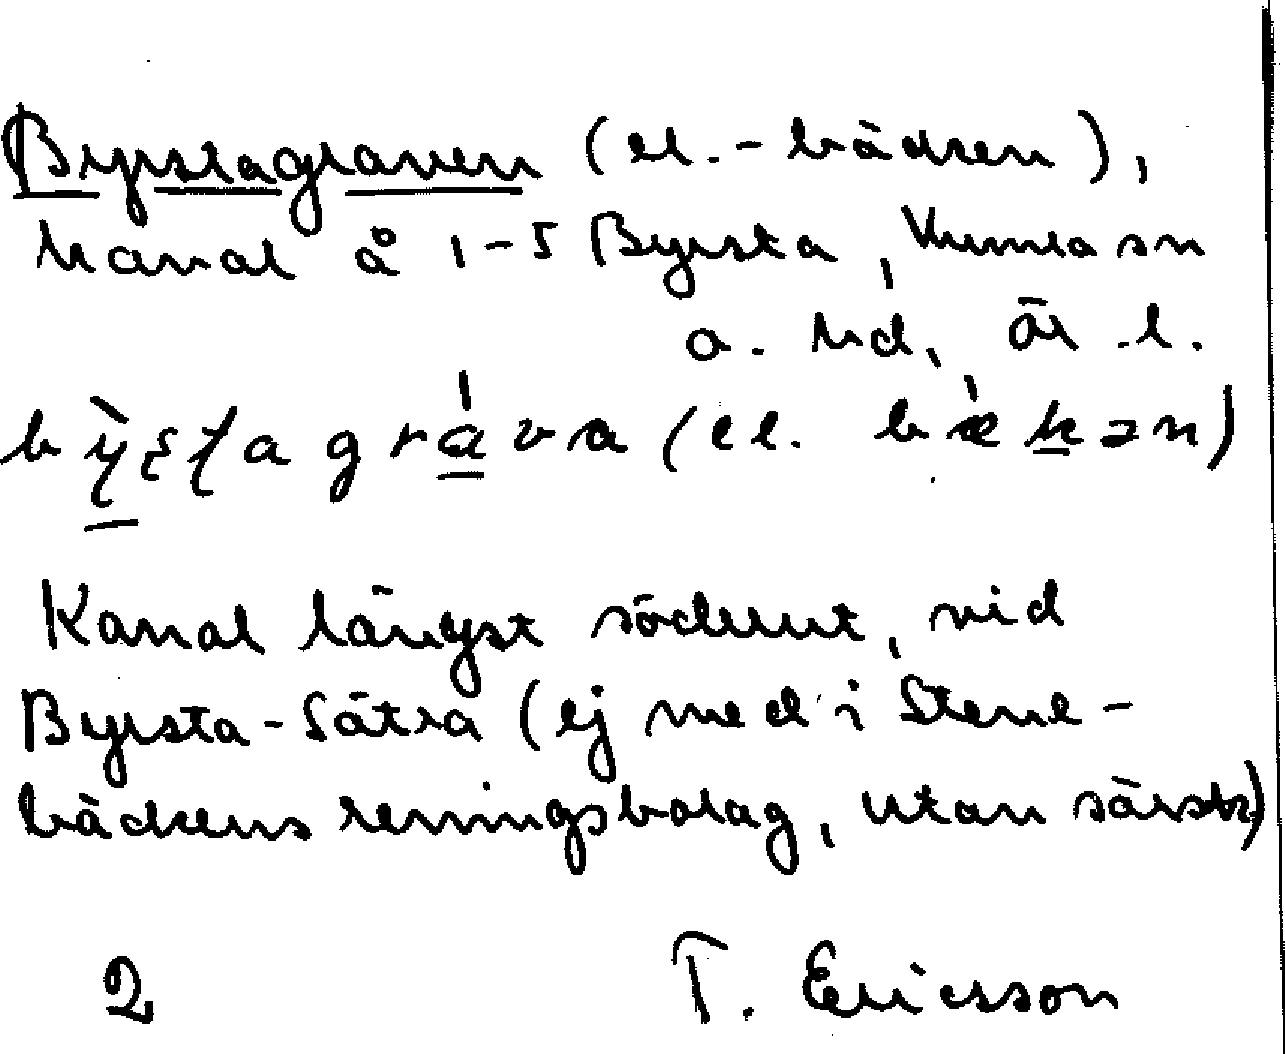 Byrstagraven (el. -bäcken),
kanal å 1-5 Byrsta, Kumla sn
o. hd, Är l.
bỳʂʈagrává (el. bǽkən)
Kanal längst söderut, vid
Byrsta-Sätra (ej med i Stene-
bäckens reningsbolag, utan särsk)
2 T. Ericsson